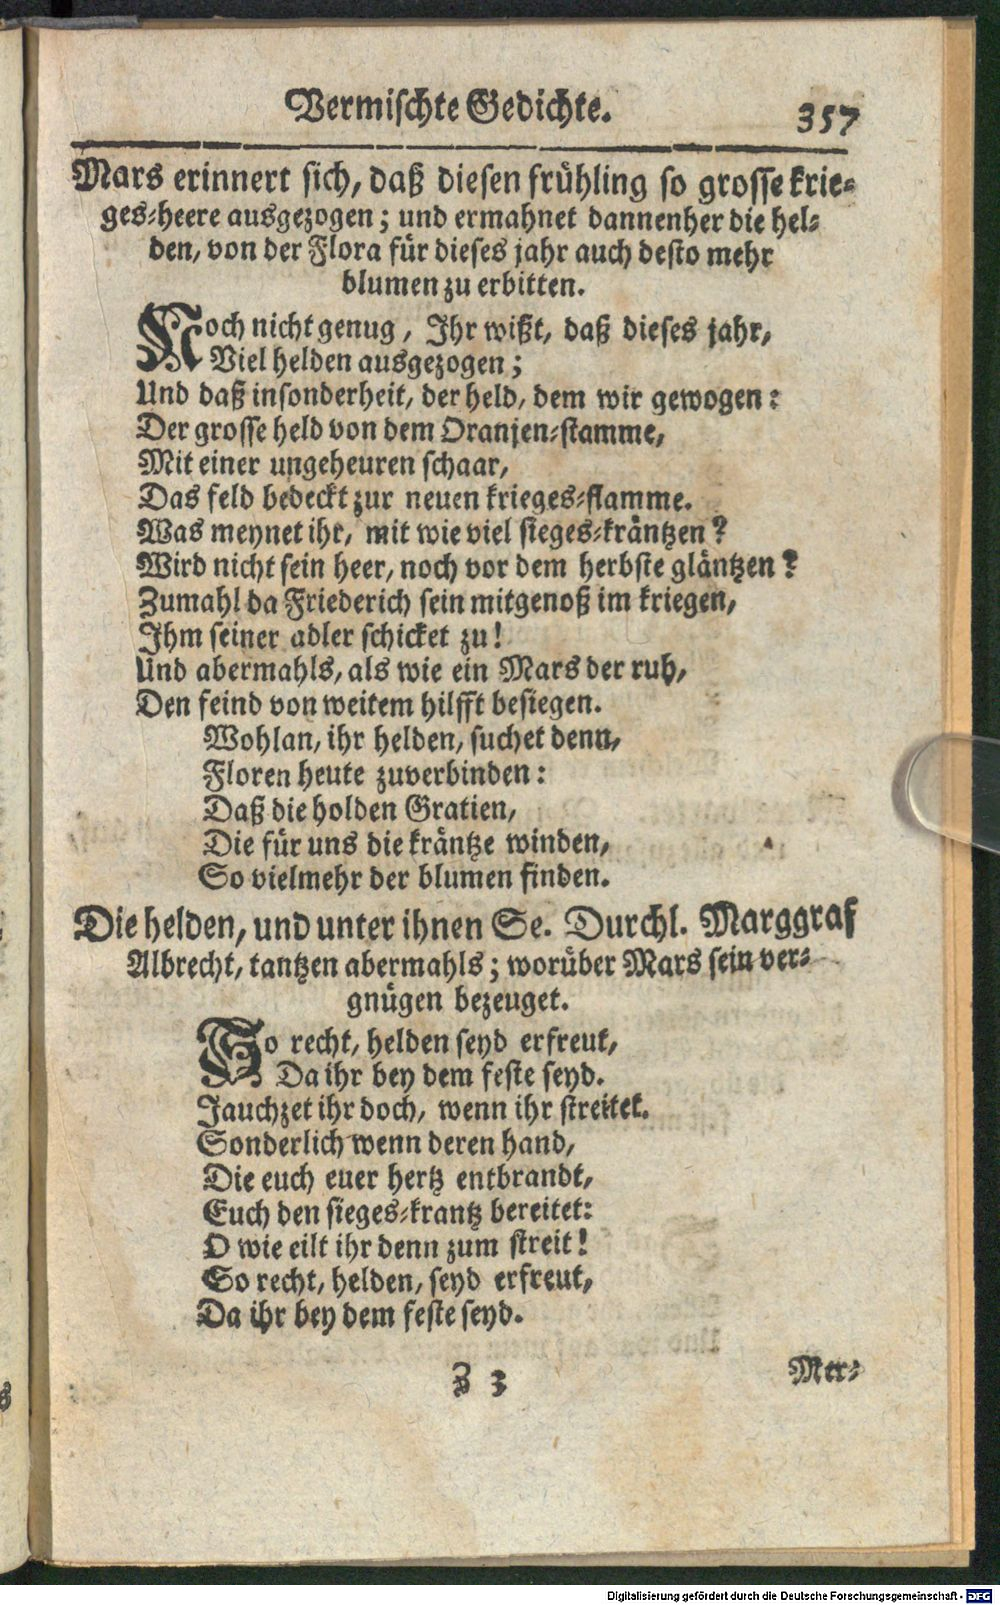 Vermischte Gedichte. 357
Mars erinnert sich, daß diesen frühling so grosse krie-
ges-heere ausgezogen; und ermahnet dannenher die hel-
den, von der Flora für dieses jahr auch desto mehr
blumen zu erbitten.
Noch nicht genug, Ihr wißt, daß dieses jahr,
Viel helden ausgezogen;
Und daß insonderheit, der held, dem wir gewogen:
Der grosse held von dem Oranjen-stamme,
Mit einer ungeheuren schaar,
Das feld bedeckt zur neuen krieges-flamme.
Was meynet ihr, mit wie viel sieges-kräntzen?
Wird nicht sein heer, noch vor dem herbste gläntzen?
Zumahl da Friederich sein mitgenoß im kriegen,
Ihm seiner adler schicket zu!
Und abermahls, als wie ein Mars der ruh,
Den feind von weitem hilfft besiegen.
Wohlan, ihr helden, suchet denn,
Floren heute zuverbinden:
Daß die holden Gratien,
Die für uns die kräntze winden,
So vielmehr der blumen finden.
Die helden, und unter ihnen Se. Durchl. Marggraf
Albrecht, tantzen abermahls; worüber Mars sein ver-
gnügen bezeuget.
So recht, helden seyd erfreut,
Da ihr bey dem feste seyd.
Jauchzet ihr doch, wenn ihr streitet.
Sonderlich wenn deren hand,
Die euch euer hertz entbrandt,
Euch den sieges-krantz bereitet:
O wie eilt ihr denn zum streit!
So recht, helden, seyd erfreut,
Da ihr bey dem feste seyd.
Z 3 Mer-
Digitalisierung gefördert durch die Deutsche Forschungsgemeinschaft - DFG